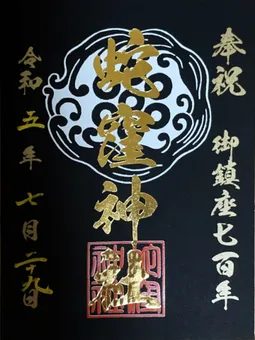 奉祝 御鎮座七百年
蛇窪神社
令和五年七月二十九日